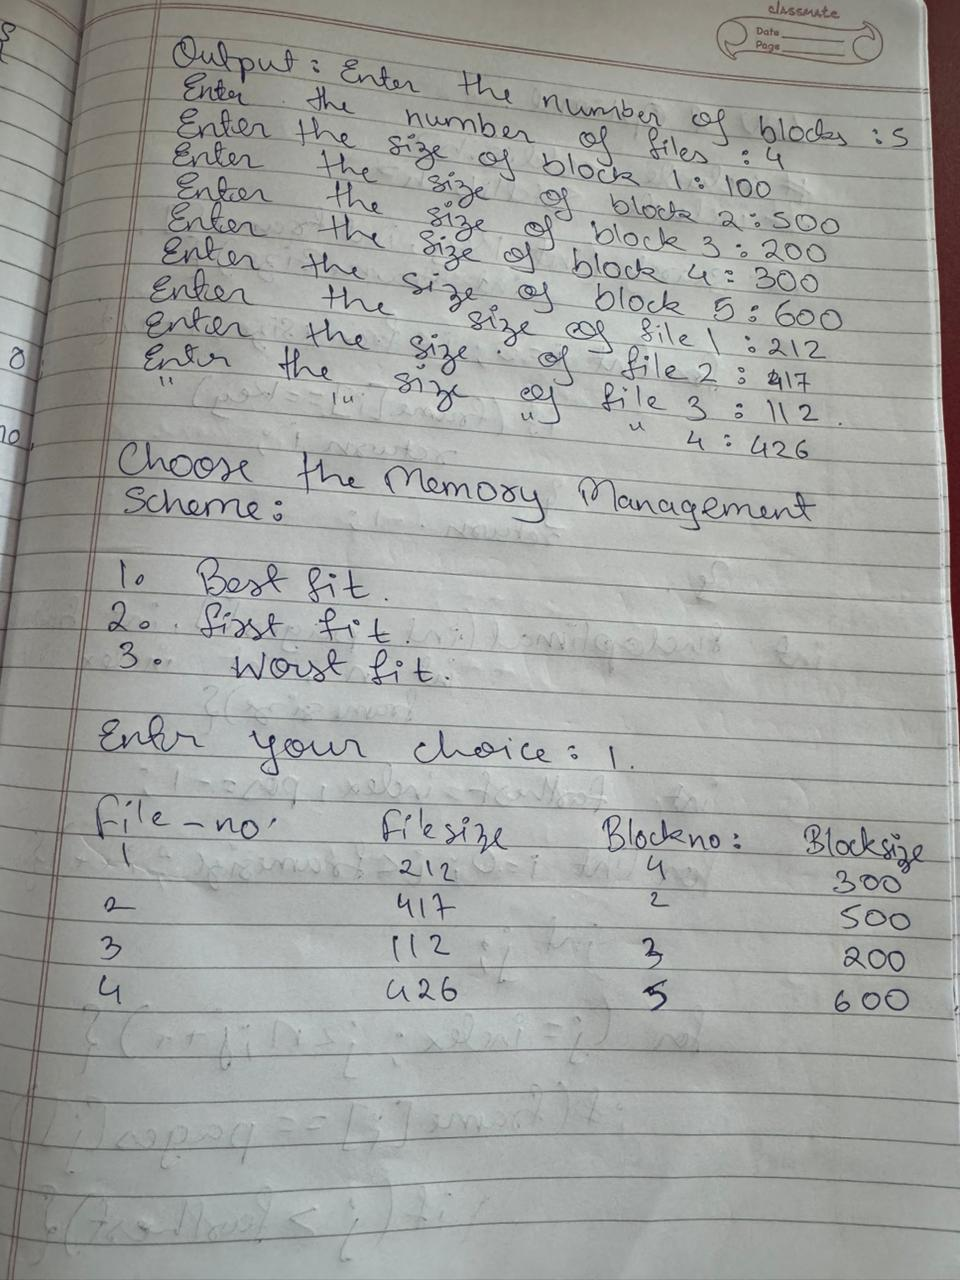 classmate
Date
Page
Output: Enter the number of blocks : 5
Enter the number of files : 4
Enter the size of block 1: 100
Enter the size of block 2: 500
Enter the size of block 3: 200
Enter the size of block 4: 300
Enter the size of block 5: 600
Enter the size of file 1 : 212
Enter the size of file 2 : 417
Enter the size of file 3 : 112
" " " " 4 : 426
Choose the Memory Management
Scheme:
1. Best fit.
2. first fit.
3. Worst fit.
Enter your choice: 1.
File-no. Filesize Blockno: Blocksize
1 212 4 300
2 417 2 500
3 112 3 200
4 426 5 600